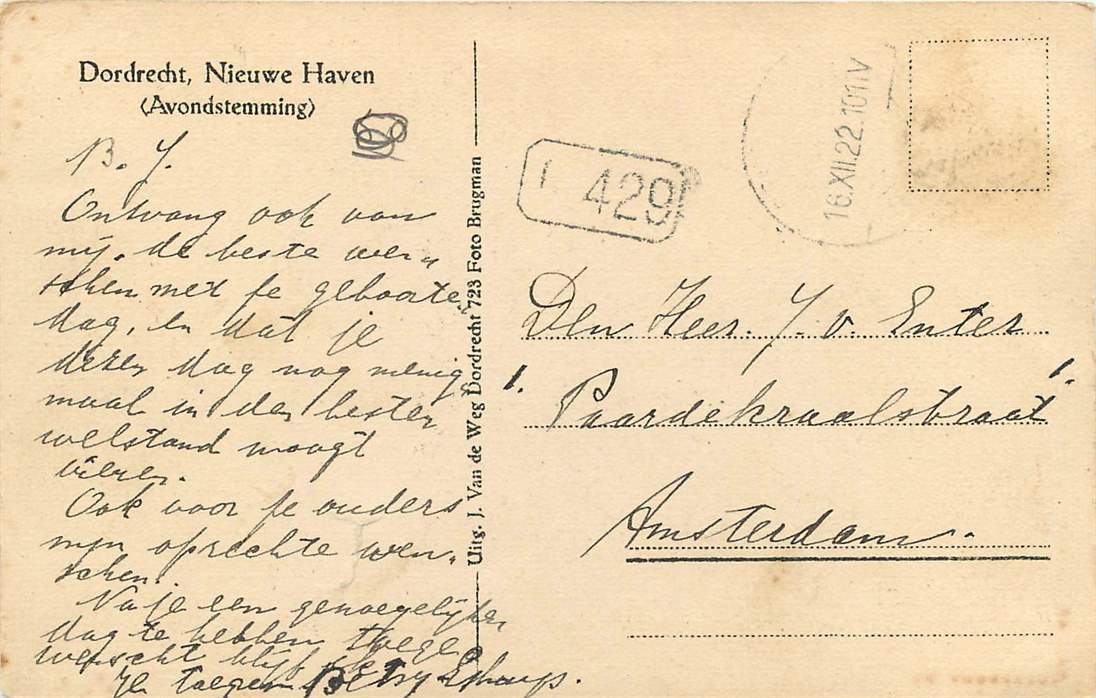 Dordrecht, Nieuwe Haven
(Avondstemming)
B. J.
Ontvang ook van
mij. de beste wen„
schen met je geboorte„
dag, en dat je
dezen dag nog menig„
maal in den besten
welstand moogt
vieren.
Ook voor je ouders
mijn oprechte wen„
schen.
Na je een genoegelijken
dag te hebben toege„
wenscht blijf ik
je toegen. Betsy
Uitg. J. Van de Weg Dordrecht 723 Foto Brugman
429
16.XII.22.10
Den Heer. J. v. Enter
Paardekraalstraat 1.
Amsterdam.